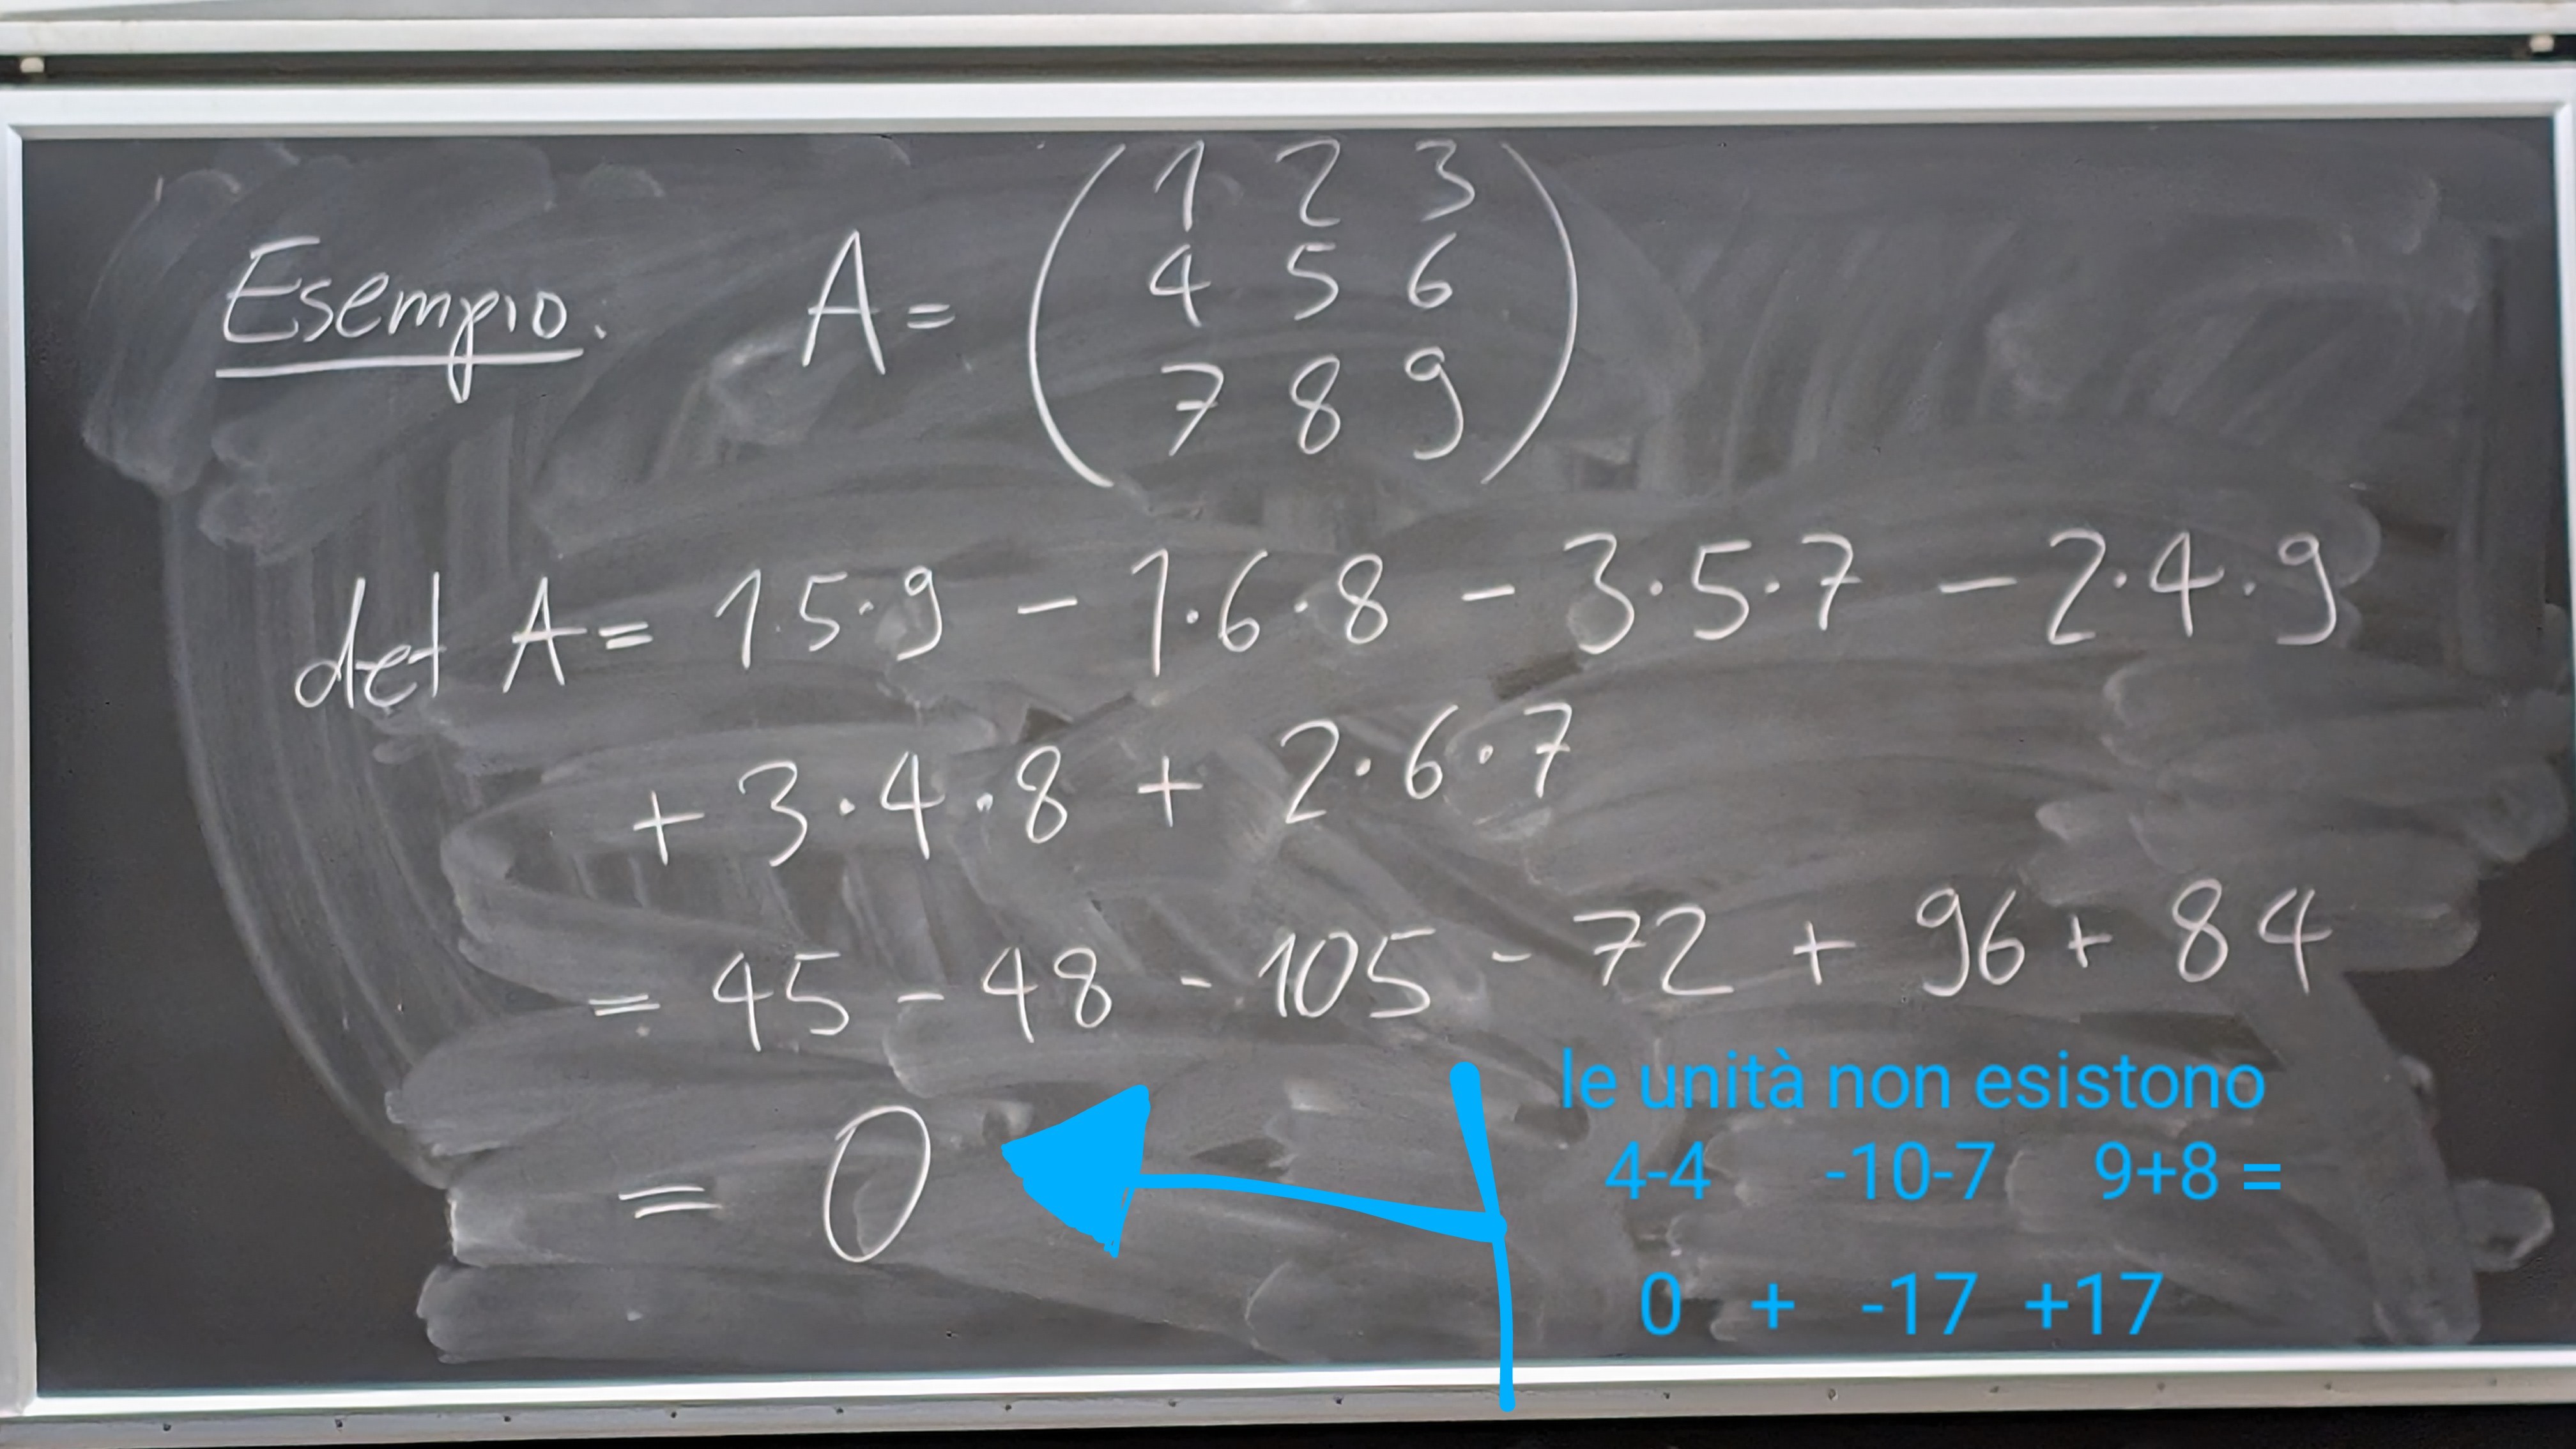 Esempio. A = ( 1 2 3
4 5 6
7 8 9 )
det A = 1·5·9 - 1·6·8 - 3·5·7 - 2·4·9
+ 3·4·8 + 2·6·7
= 45 - 48 - 105 - 72 + 96 + 84
= 0
le unità non esistono
4-4 -10-7 9+8 =
0 + -17 +17